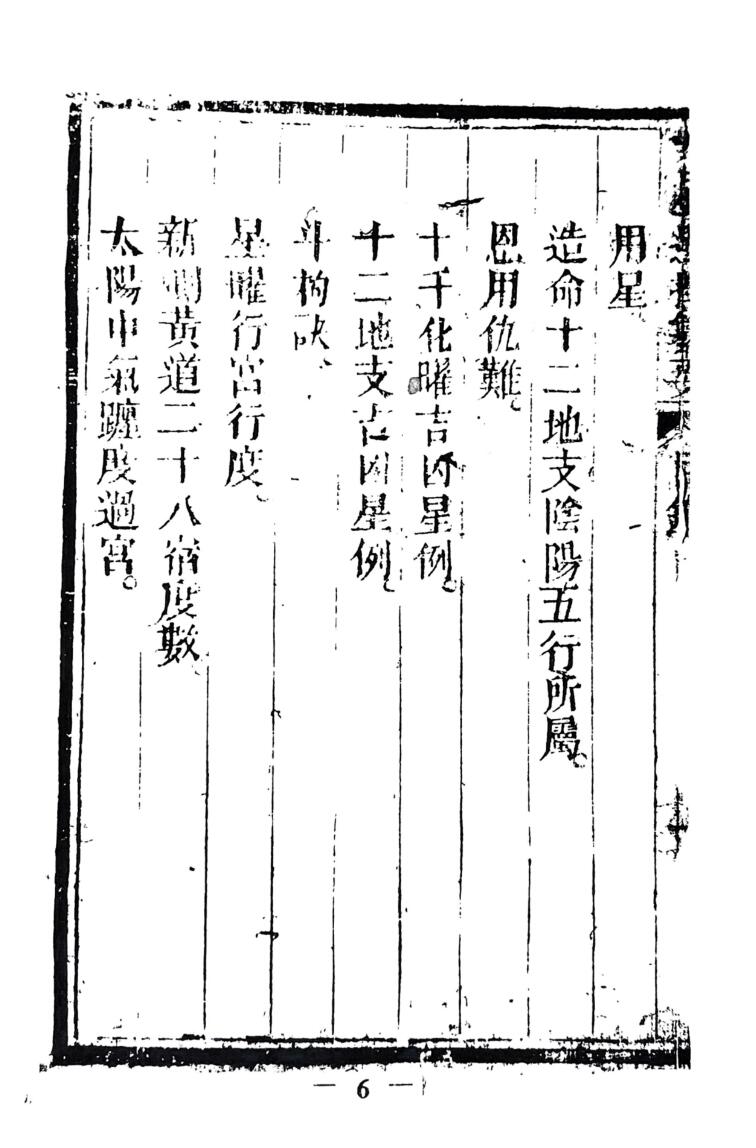 用星
造命十二地支陰陽五行所屬。
恩用仇難。
十干化曜吉凶星例。
十二地支吉凶星例。
斗杓訣、
星曜行宮行度。
新測黃道二十八宿度數
太陽中氣躔度過宮。
— 6 —